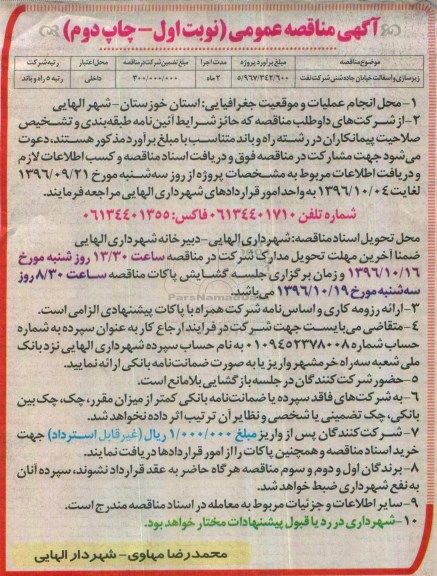 آگهی مناقصه عمومی (نوبت اول - چاپ دوم)
موضوع مناقصه	مبلغ برآورد پروژه	مدت اجرا	مبلغ تضمین شرکت در مناقصه	محل اعتبار	رتبه شرکت
زیرسازی و اسفالت خیابان جاده شنی شرکت نفت	۵/۹۶۷/۳۴۲/۶۰۰	۲ ماه	۳۰۰/۰۰۰/۰۰۰	داخلی	رتبه ۵ راه و باند
۱- محل انجام عملیات و موقعیت جغرافیایی: استان خوزستان - شهر الهایی
۲- از شرکت‌های داوطلب مناقصه که حائز شرایط آئین نامه طبقه‌بندی و تشخیص
صلاحیت پیمانکاران در رشته راه و باند متناسب با مبلغ برآورد مذکور هستند، دعوت
می‌شود جهت مشارکت در مناقصه فوق و دریافت اسناد مناقصه و کسب اطلاعات لازم
و دریافت اطلاعات مربوط به مشخصات پروژه از روز سه‌شنبه مورخ ۱۳۹۶/۰۹/۲۱
لغایت ۱۳۹۶/۱۰/۰۴ به واحد امور قراردادهای شهرداری الهایی مراجعه فرمایند.
شماره تلفن ۰۶۱۳۴۴۰۱۷۱۰ فاکس: ۰۶۱۳۴۴۰۱۳۵۵
محل تحویل اسناد مناقصه: شهرداری الهایی - دبیرخانه شهرداری الهایی
ضمنا آخرین مهلت تحویل مدارک شرکت در مناقصه ساعت ۱۳/۳۰ روز شنبه مورخ
۱۳۹۶/۱۰/۱۶ و زمان برگزاری جلسه گشایش پاکات مناقصه ساعت ۸/۳۰ روز
سه‌شنبه مورخ ۱۳۹۶/۱۰/۱۹ می‌باشد.
۳- ارائه رزومه کاری و اساس نامه شرکت همراه با پاکات پیشنهادی الزامی است.
۴- متقاضی می‌بایست جهت شرکت در فرایند ارجاع کار به عنوان سپرده به شماره
حساب شماره ۰۱۰۹۴۵۲۳۷۸۰۰۸ به نام حساب سپرده شهرداری الهایی نزد بانک
ملی شعبه سه راه خرمشهر واریز یا به صورت ضمانت‌نامه بانکی ارائه نمایید.
۵- حضور شرکت کنندگان در جلسه بازگشایی بلامانع است.
۶- به شرکت‌های فاقد سپرده یا ضمانت‌نامه بانکی کمتر از میزان مقرر، چک، چک بین
بانکی، چک تضمینی یا شخصی و نظایر آن ترتیب اثر داده نخواهد شد.
۷- شرکت کنندگان پس از واریز مبلغ ۱/۰۰۰/۰۰۰ ریال (غیر قابل استرداد) جهت
خرید اسناد مناقصه و همچنین پاکات را از امور قراردادها دریافت نمایند.
۸- برندگان اول و دوم و سوم مناقصه هر گاه حاضر به عقد قرارداد نشوند، سپرده آنان
به نفع شهرداری ضبط خواهد شد.
۹- سایر اطلاعات و جزئیات مربوط به معامله در اسناد مناقصه مندرج است.
۱۰- شهرداری در رد یا قبول پیشنهادات مختار خواهد بود.
محمدرضا مهاوی - شهردار الهایی